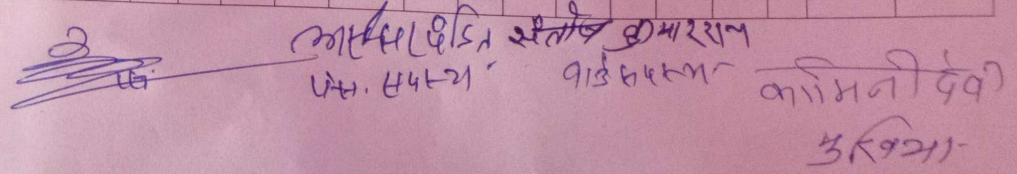 पंडित संतोष कुमार राम
पं.स. सदस्य वार्ड सदस्य
कामिनी देवी
मुखिया